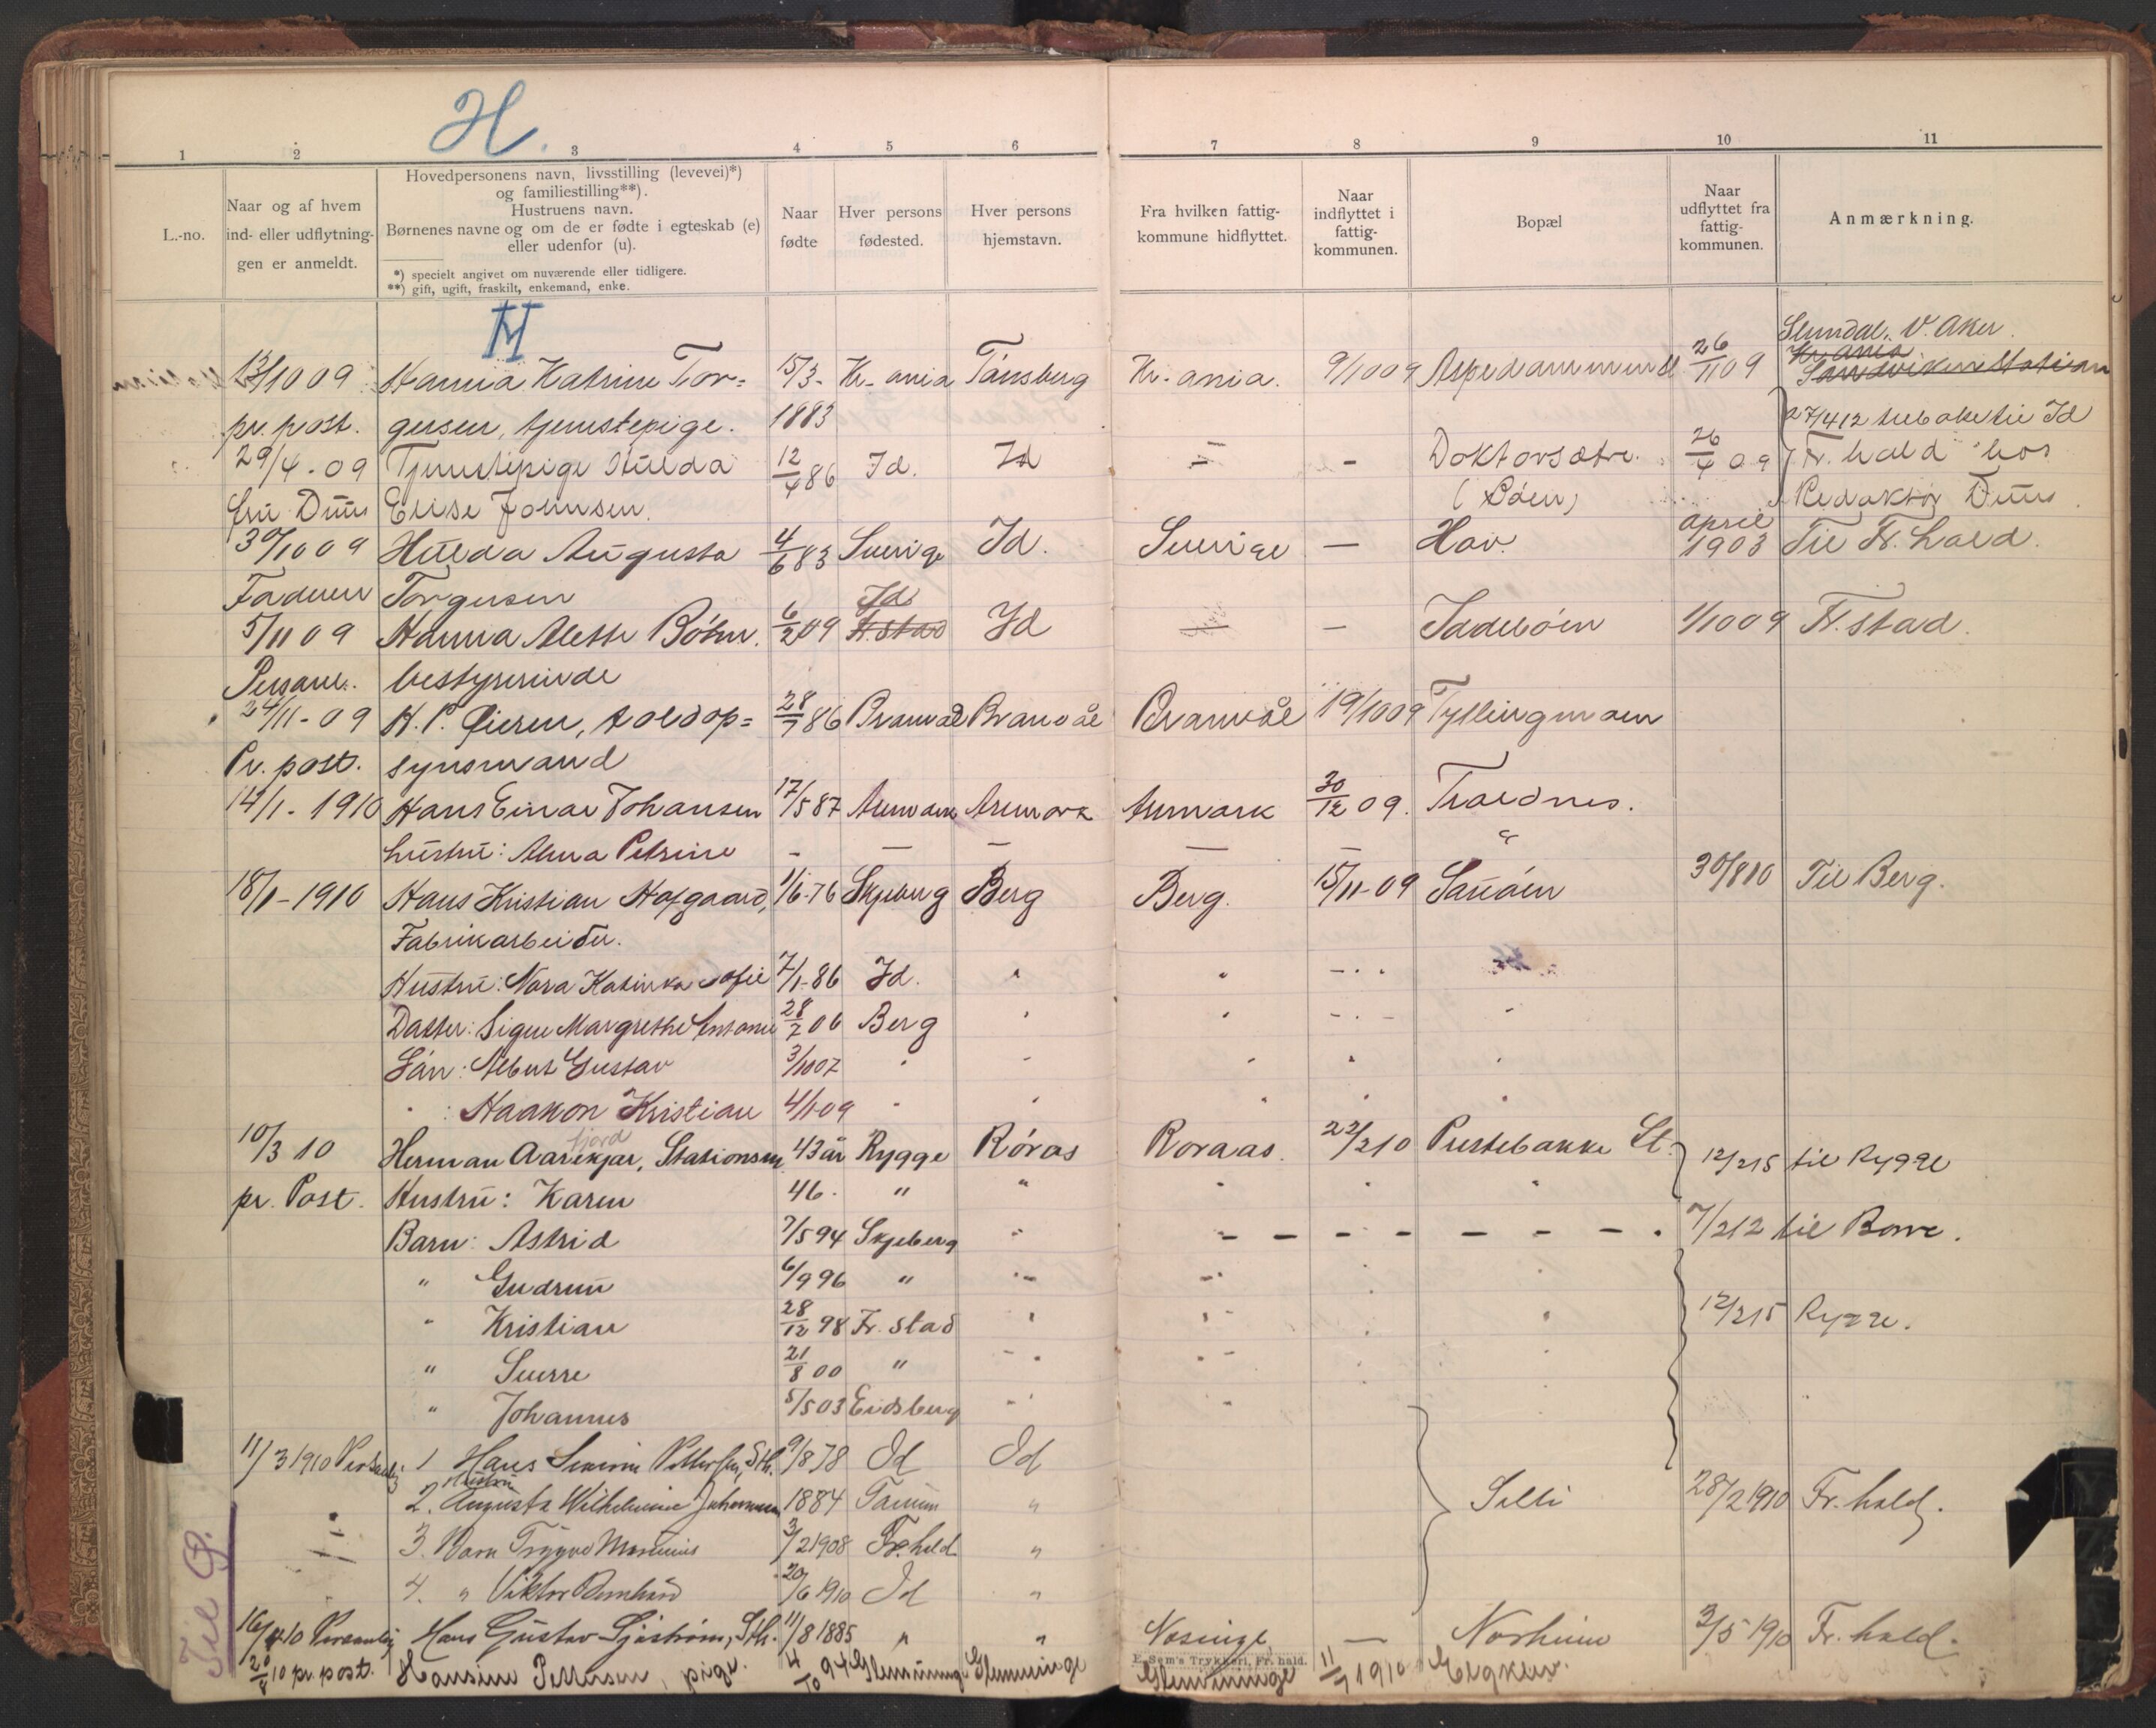 H.
1 2 3 4 5 6 7 8 9 10 11
L.-no.
Naar og af hvem
ind- eller udflytnin-
gen er anmeldt.
Hovedpersonens navn, livsstilling (levevei)*)
og familiestilling**).
Hustruens navn.
Børnenes navne og om de er fødte i egteskab (e)
eller udenfor (u).
*) specielt angivet om nuværende eller tidligere.
**) gift, ugift, fraskilt, enkemand, enke.
Naar
fødte
Hver persons
fødested.
Hver persons
hjemstavn.
Fra hvilken fattig-
kommune hidflyttet.
Naar
indflyttet i
fattig-
kommunen.
Bopæl
Naar
udflyttet fra
fattig-
kommunen.
Anmærkning.
H
V. Aker.
Kr. ania
13/10 09 Hanna Katrine Tor= 15/3- Kr-ania Tønsberg Kr.-ania. 9/10 09 26/11 09 Sandviken Station
pr. post. gersen, tjenestepige. 1883 27/4 12 tilbake til Id
29/4-09 Tjenestepige Hulda 12/4 86 Id. Id — - Doktorsætre. 26/4 09 Fr.hald hos
fru Duus Elise Johnsen. (Øöen) Redaktör Duus.
30/10 09 Hulda Augusta 4/6 83 Sverige Id. Sverige — Hov. april 1903 Til Fr. hald.
Faderen Torgersen Id
5/11 09 Hanna Alette Böhn. 6/2 09 Fr.stad Id — - 1/10 09 Fr.stad.
Personl. bestyrerinde
24/11-09 H. P. Øieren, toldop= 28/7 86 Brandvål Brandvål Brandvål 19/10 09 Tyllingmoen
Pr. post. synsmand
14/1-1910 Hans Einar Johansen 17/5 87 Aremark Aremark Aremark 30/12 09. Traldnes.
hustru: Alma Petrine - — — — — "
18/1-1910 Hans Kristian Hofgaard, 1/6-76 Skjeberg Berg Berg. 15/11-09 Sauöen 30/8 10 Til Berg.
Fabrikarbeider.
Hustru: Nora Katinka Sofie 7/1-86 Id. " "
Datter: Signe Margrethe Antonie 28/2 06 Berg " "
Sön: Albert Gustav 3/10 07 " " "
" : Haakon Kristian 4/1 09 " " "
fjord
10/3 10 Herman Aarekjær, Stationsm. 43 år Rygge Röros Roraas. 22/2 10 Prestebakke St. 12/2 15 til Rygge
pr. Post. Hustru: Karen 46. " " " " "
Barn: Astrid 7/5 94 Skjeberg " - - - - - - - 7/2 12 til Borre.
" Gudrun 6/9 96 " "
" Kristian 28/12 98 Fr.stad " 12/2 15 Rygge.
" Sverre 21/8 00 " "
" Johannes 5/5 03 Eidsberg "
11/3 1910 Personlig 1 Hans Severin Pettersen, Sth. 9/8 78 Id Id
Hustru
2. Augusta Wilhelmine Johannesen 1884 Tanum " Selli 28/2 1910 Fr.hald.
3. Barn Trygve Marinius 3/2 1908 Fr.hald "
4. " Viktor Bernhard 20/6 1910 Id "
16/4 10 Personlig Hans Gustav Sjöström, Sth. 11/8 1885 " " Nasinge — Norheim 3/5 1910 Fr.hald.
E. Sem's Trykkeri, Fr.hald.
20/8 10 pr. post. Hansine Pettersen, pige. 4/10 94 Glemminge Glemminge Glemminge 11/7 1910
Til P.